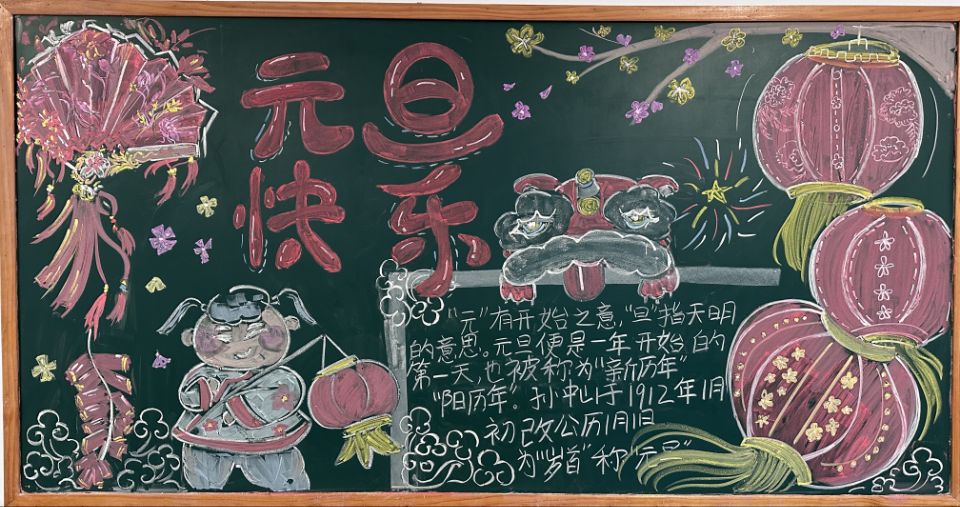 元旦
快乐
"元"有开始之意,"旦"指天明
的意思。元旦便是一年开始的
第一天,也被称为"新历年"
"阳历年"。孙中山于1912年1月
初改公历1月1日
为"岁首"称"元旦"